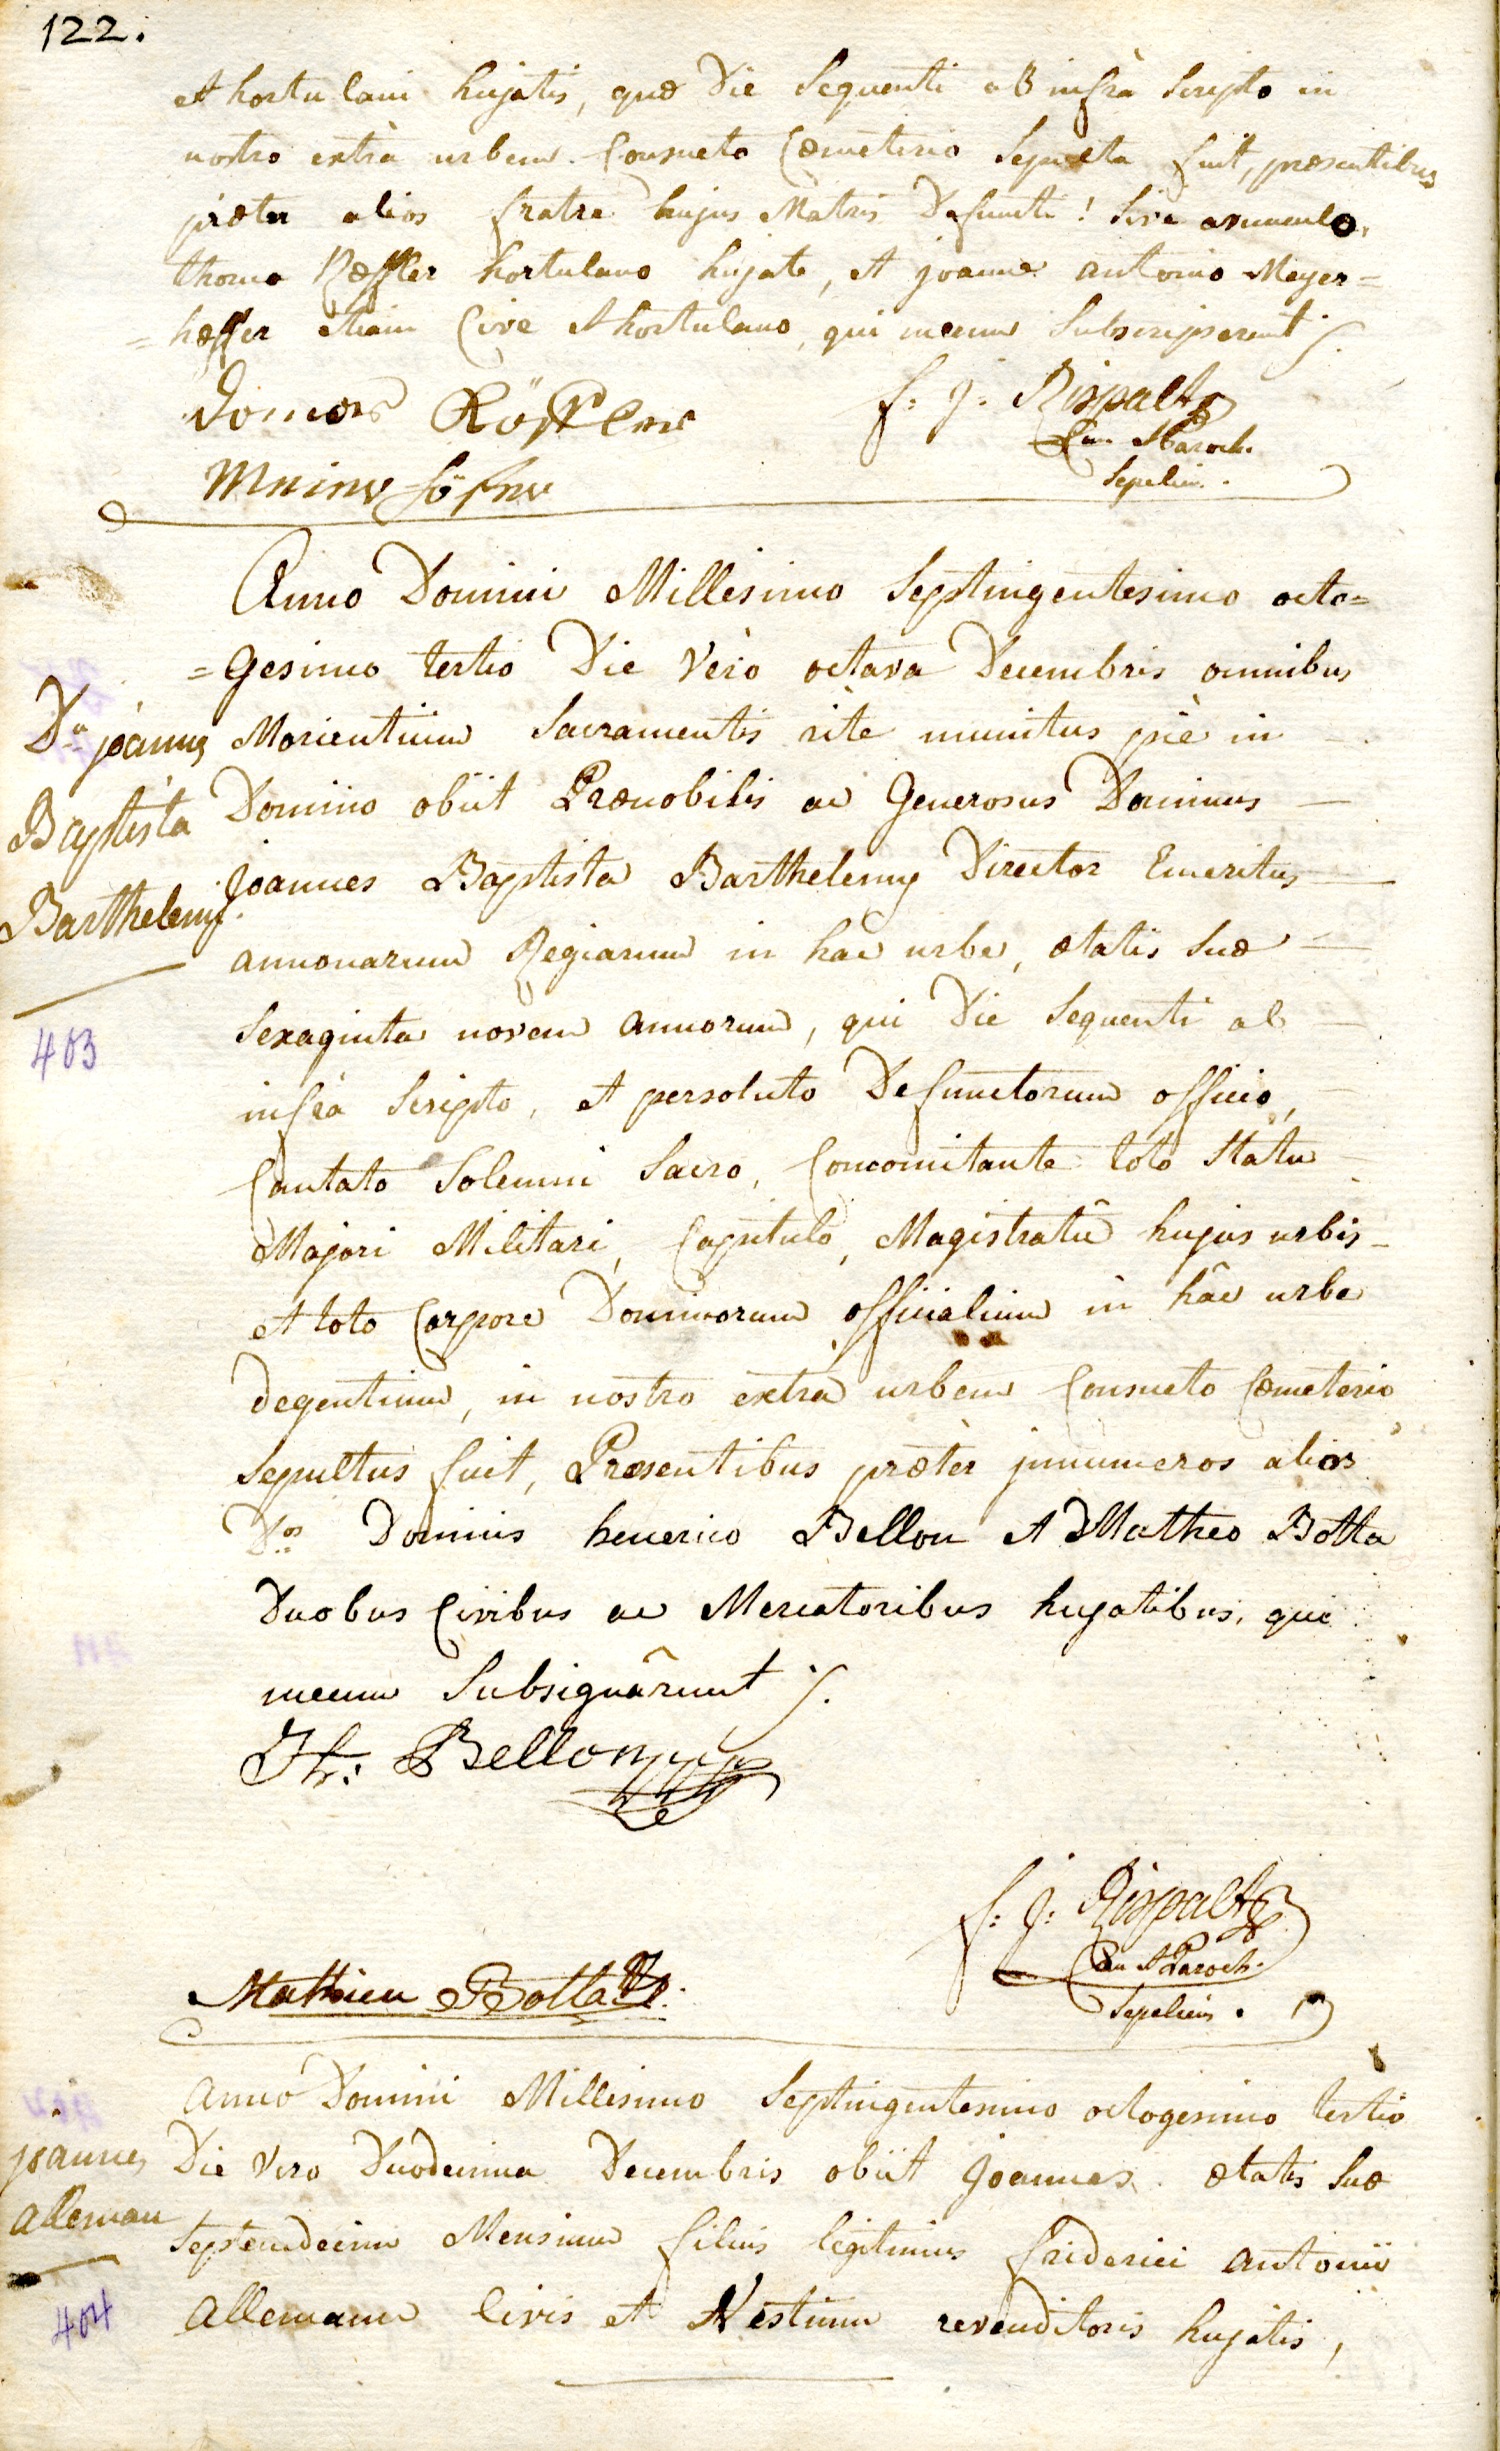 122.
et hortulani hujatis, quæ Die Sequenti ab infrà Scripto in
nostro extrà urbem Consueto Cœmeterio Sepulta fuit, præsentibus
præter alios fratre hujus Matris Defunctæ! Sive avunculo,
thoma Rœffler hortulano hujate, et joanne antonio Meyer=
=hœffer etiam Cive et hortulano, qui mecum Subscripserunt ./.
Domas Röffler
f: J: Rispalt
Can et Paroch.
Sepelivi.
Meierhöfer
Anno Domini Millesimo Septingentesimo octo=
=Gesimo tertio Die Verò octava Decembris omnibus
Morientium Sacramentis ritè munitus piè in
Domino obiit Prænobilis ac Generosus Dominus
Joannes Baptista Barthelemy Director Emeritus
annonarum Regiarum in hac urbe, ætatis Suæ
Sexaginta novem annorum, qui Die Sequenti ab
infrà Scripto, et persoluto Defunctorum officio,
Cantato Solemni Sacro, Concomitante toto Statu
Majori Militari, Capitulo, Magistratû hujus urbis
et toto Corpore Dominorum officialium in hâc urbe
Degentium, in nostro extra urbem Consueto Cœmeterio
Sepultus fuit, Præsentibus prætèr jnnumeros alios
D.os Dominis henerico Bellon et Matheo Botta
Duobus Civibus ac Mercatoribus hujatibus, qui
mecum Subsignârunt ./.
D.us joannes
Baptista
Barthelemy.
403
H: Bellon
f: J: Rispalt
Can et Paroch.
Sepelivi.
Mathieu Botta
Anno Domini Millesimo Septingentesimo octogesimo tertio
Die Vero Duodecima Decembris obiit Joannes ætatis Suæ
Septemdecim Mensium filius legitimus friderici antonii
Allemann Civis et Vestium revenditoris hujatis,
joannes
alleman
404